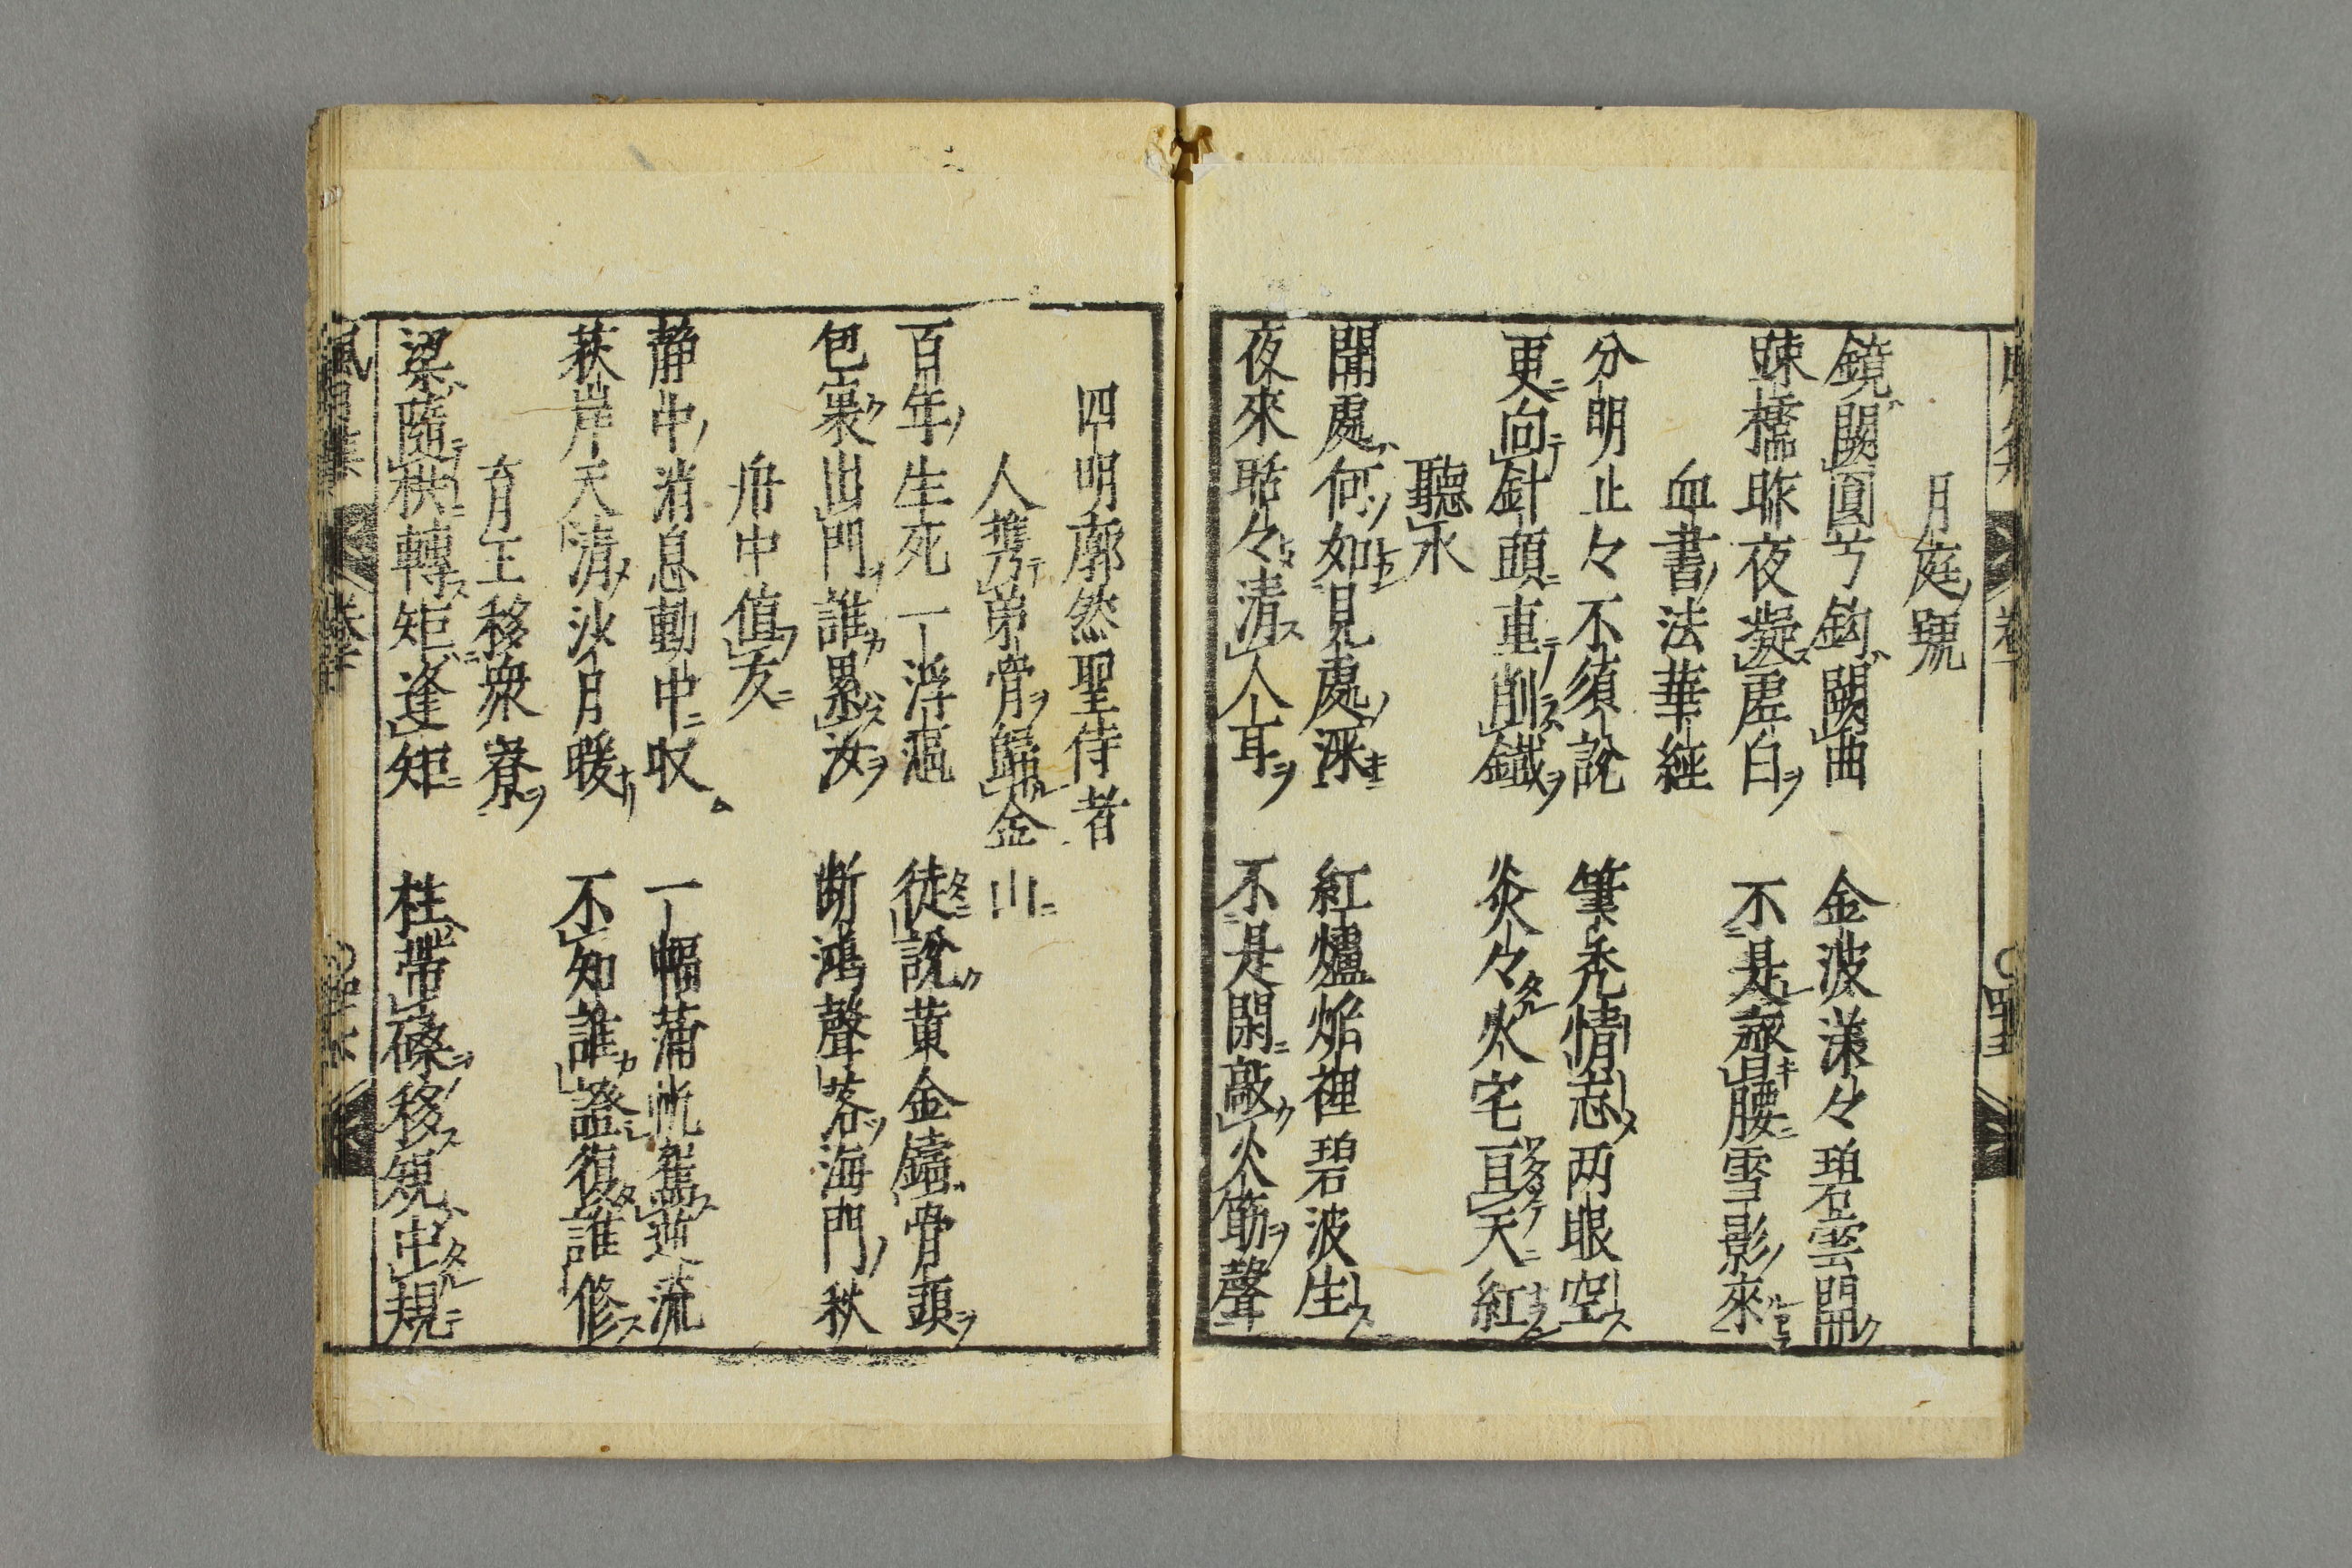 月庭號
鏡闕圓兮鈎闕曲　金波漾々碧雲開
踈橋昨夜凝虗白　不是齊腰雪影來
血書法華經
分明止々不須說　筆秃情忘两眼空
更向針頭重削鐵　炎々火宅亘天紅
聽氷
聞處何如見處深　紅爐焰裡碧波生
夜來聒々清人耳　不是閑敲火筯聲
四明廓然聖侍者
人携弟骨歸金山
百年生死一浮漚　徒說黄金鑄骨頭
包裹出門誰累汝　断鴻聲落海門秋
舟中值友
静中消息動中収　一幅蒲帆駕逆流
荻岸天清沙月暖　不知誰證復誰修
育王移衆寮
梁隨栱轉矩逢矩　柱帶磉移規中規